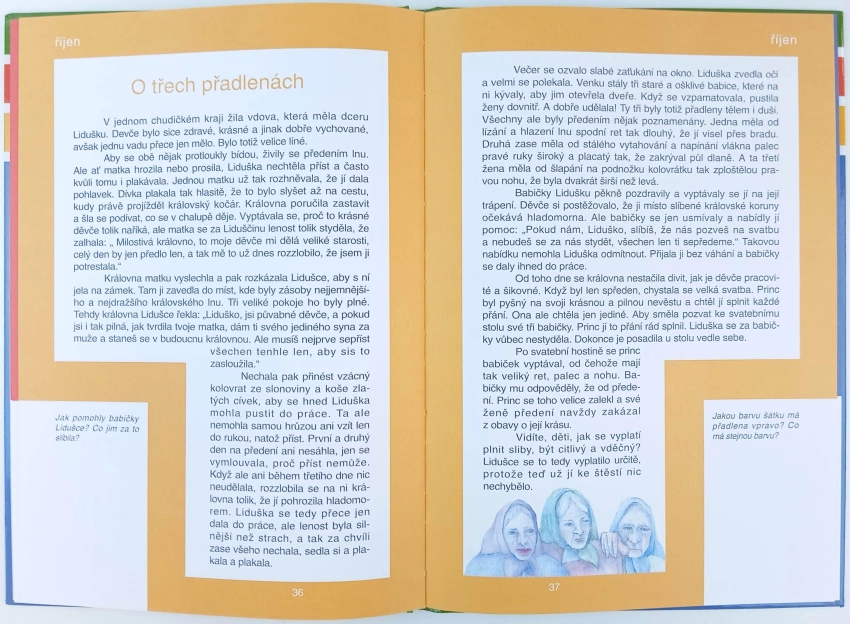 říjen
O třech přadlenách
V jednom chudičkém kraji žila vdova, která měla dceru
Lidušku. Devče bylo sice zdravé, krásné a jinak dobře vychované,
avšak jednu vadu přece jen mělo. Bylo totiž velice líné.
Aby se obě nějak protloukly bídou, živily se předením lnu.
Ale ať matka hrozila nebo prosila, Liduška nechtěla příst a často
kvůli tomu i plakávala. Jednou matku už tak rozhněvala, že jí dala
pohlavek. Dívka plakala tak hlasitě, že to bylo slyšet až na cestu,
kudy právě projížděl královský kočár. Královna poručila zastavit
a šla se podívat, co se v chalupě děje. Vyptávala se, proč to krásné
děvče tolik naříká, ale matka se za Liduščinu lenost tolik styděla, že
zalhala: „ Milostivá královno, to moje děvče mi dělá veliké starosti,
celý den by jen předlo len, a tak mě to už dnes rozzlobilo, že jsem ji
potrestala.“
Královna matku vyslechla a pak rozkázala Lidušce, aby s ní
jela na zámek. Tam ji zavedla do míst, kde byly zásoby nejjemnější-
ho a nejdražšího královského lnu. Tři veliké pokoje ho byly plné.
Tehdy královna Lidušce řekla: „Liduško, jsi půvabné děvče, a pokud
jsi i tak pilná, jak tvrdila tvoje matka, dám ti svého jediného syna za
muže a staneš se v budoucnu královnou. Ale musíš nejprve sepříst
všechen tenhle len, aby sis to
zasloužila.“
Nechala pak přinést vzácný
kolovrat ze slonoviny a koše zla-
tých cívek, aby se hned Liduška
mohla pustit do práce. Ta ale
nemohla samou hrůzou ani vzít len
do rukou, natož příst. První a druhý
den na předení ani nesáhla, jen se
vymlouvala, proč příst nemůže.
Když ale ani během třetího dne nic
neudělala, rozzlobila se na ni krá-
lovna tolik, že jí pohrozila hladomo-
rem. Liduška se tedy přece jen
dala do práce, ale lenost byla sil-
nější než strach, a tak za chvíli
zase všeho nechala, sedla si a pla-
kala a plakala.
Jak pomohly babičky
Lidušce? Co jim za to
slíbila?
36
říjen
Večer se ozvalo slabé zaťukání na okno. Liduška zvedla oči
a velmi se polekala. Venku stály tři staré a ošklivé babice, které na
ni kývaly, aby jim otevřela dveře. Když se vzpamatovala, pustila
ženy dovnitř. A dobře udělala! Ty tři byly totiž přadleny tělem i duší.
Všechny ale byly předením nějak poznamenány. Jedna měla od
lízání a hlazení lnu spodní ret tak dlouhý, že jí visel přes bradu.
Druhá zase měla od stálého vytahování a napínání vlákna palec
pravé ruky široký a placatý tak, že zakrýval půl dlaně. A ta třetí
žena měla od šlapání na podnožku kolovrátku tak zploštělou pra-
vou nohu, že byla dvakrát širší než levá.
Babičky Lidušku pěkně pozdravily a vyptávaly se jí na její
trápení. Děvče si postěžovalo, že ji místo slíbené královské koruny
očekává hladomorna. Ale babičky se jen usmívaly a nabídly jí
pomoc: „Pokud nám, Liduško, slíbíš, že nás pozveš na svatbu
a nebudeš se za nás stydět, všechen len ti sepředeme.“ Takovou
nabídku nemohla Liduška odmítnout. Přijala ji bez váhání a babičky
se daly ihned do práce.
Od toho dne se královna nestačila divit, jak je děvče pracovi-
té a šikovné. Když byl len spředen, chystala se velká svatba. Princ
byl pyšný na svoji krásnou a pilnou nevěstu a chtěl jí splnit každé
přání. Ona ale chtěla jen jediné. Aby směla pozvat ke svatebnímu
stolu své tři babičky. Princ jí to přání rád splnil. Liduška se za babič-
ky vůbec nestyděla. Dokonce je posadila u stolu vedle sebe.
Po svatební hostině se princ
babiček vyptával, od čehože mají
tak veliký ret, palec a nohu. Ba-
bičky mu odpověděly, že od přede-
ní. Princ se toho velice zalekl a své
ženě předení navždy zakázal
z obavy o její krásu.
Vidíte, děti, jak se vyplatí
plnit sliby, být citlivý a vděčný?
Lidušce se to tedy vyplatilo určitě,
protože teď už jí ke štěstí nic
nechybělo.
Jakou barvu šátku má
přadlena vpravo? Co
má stejnou barvu?
37